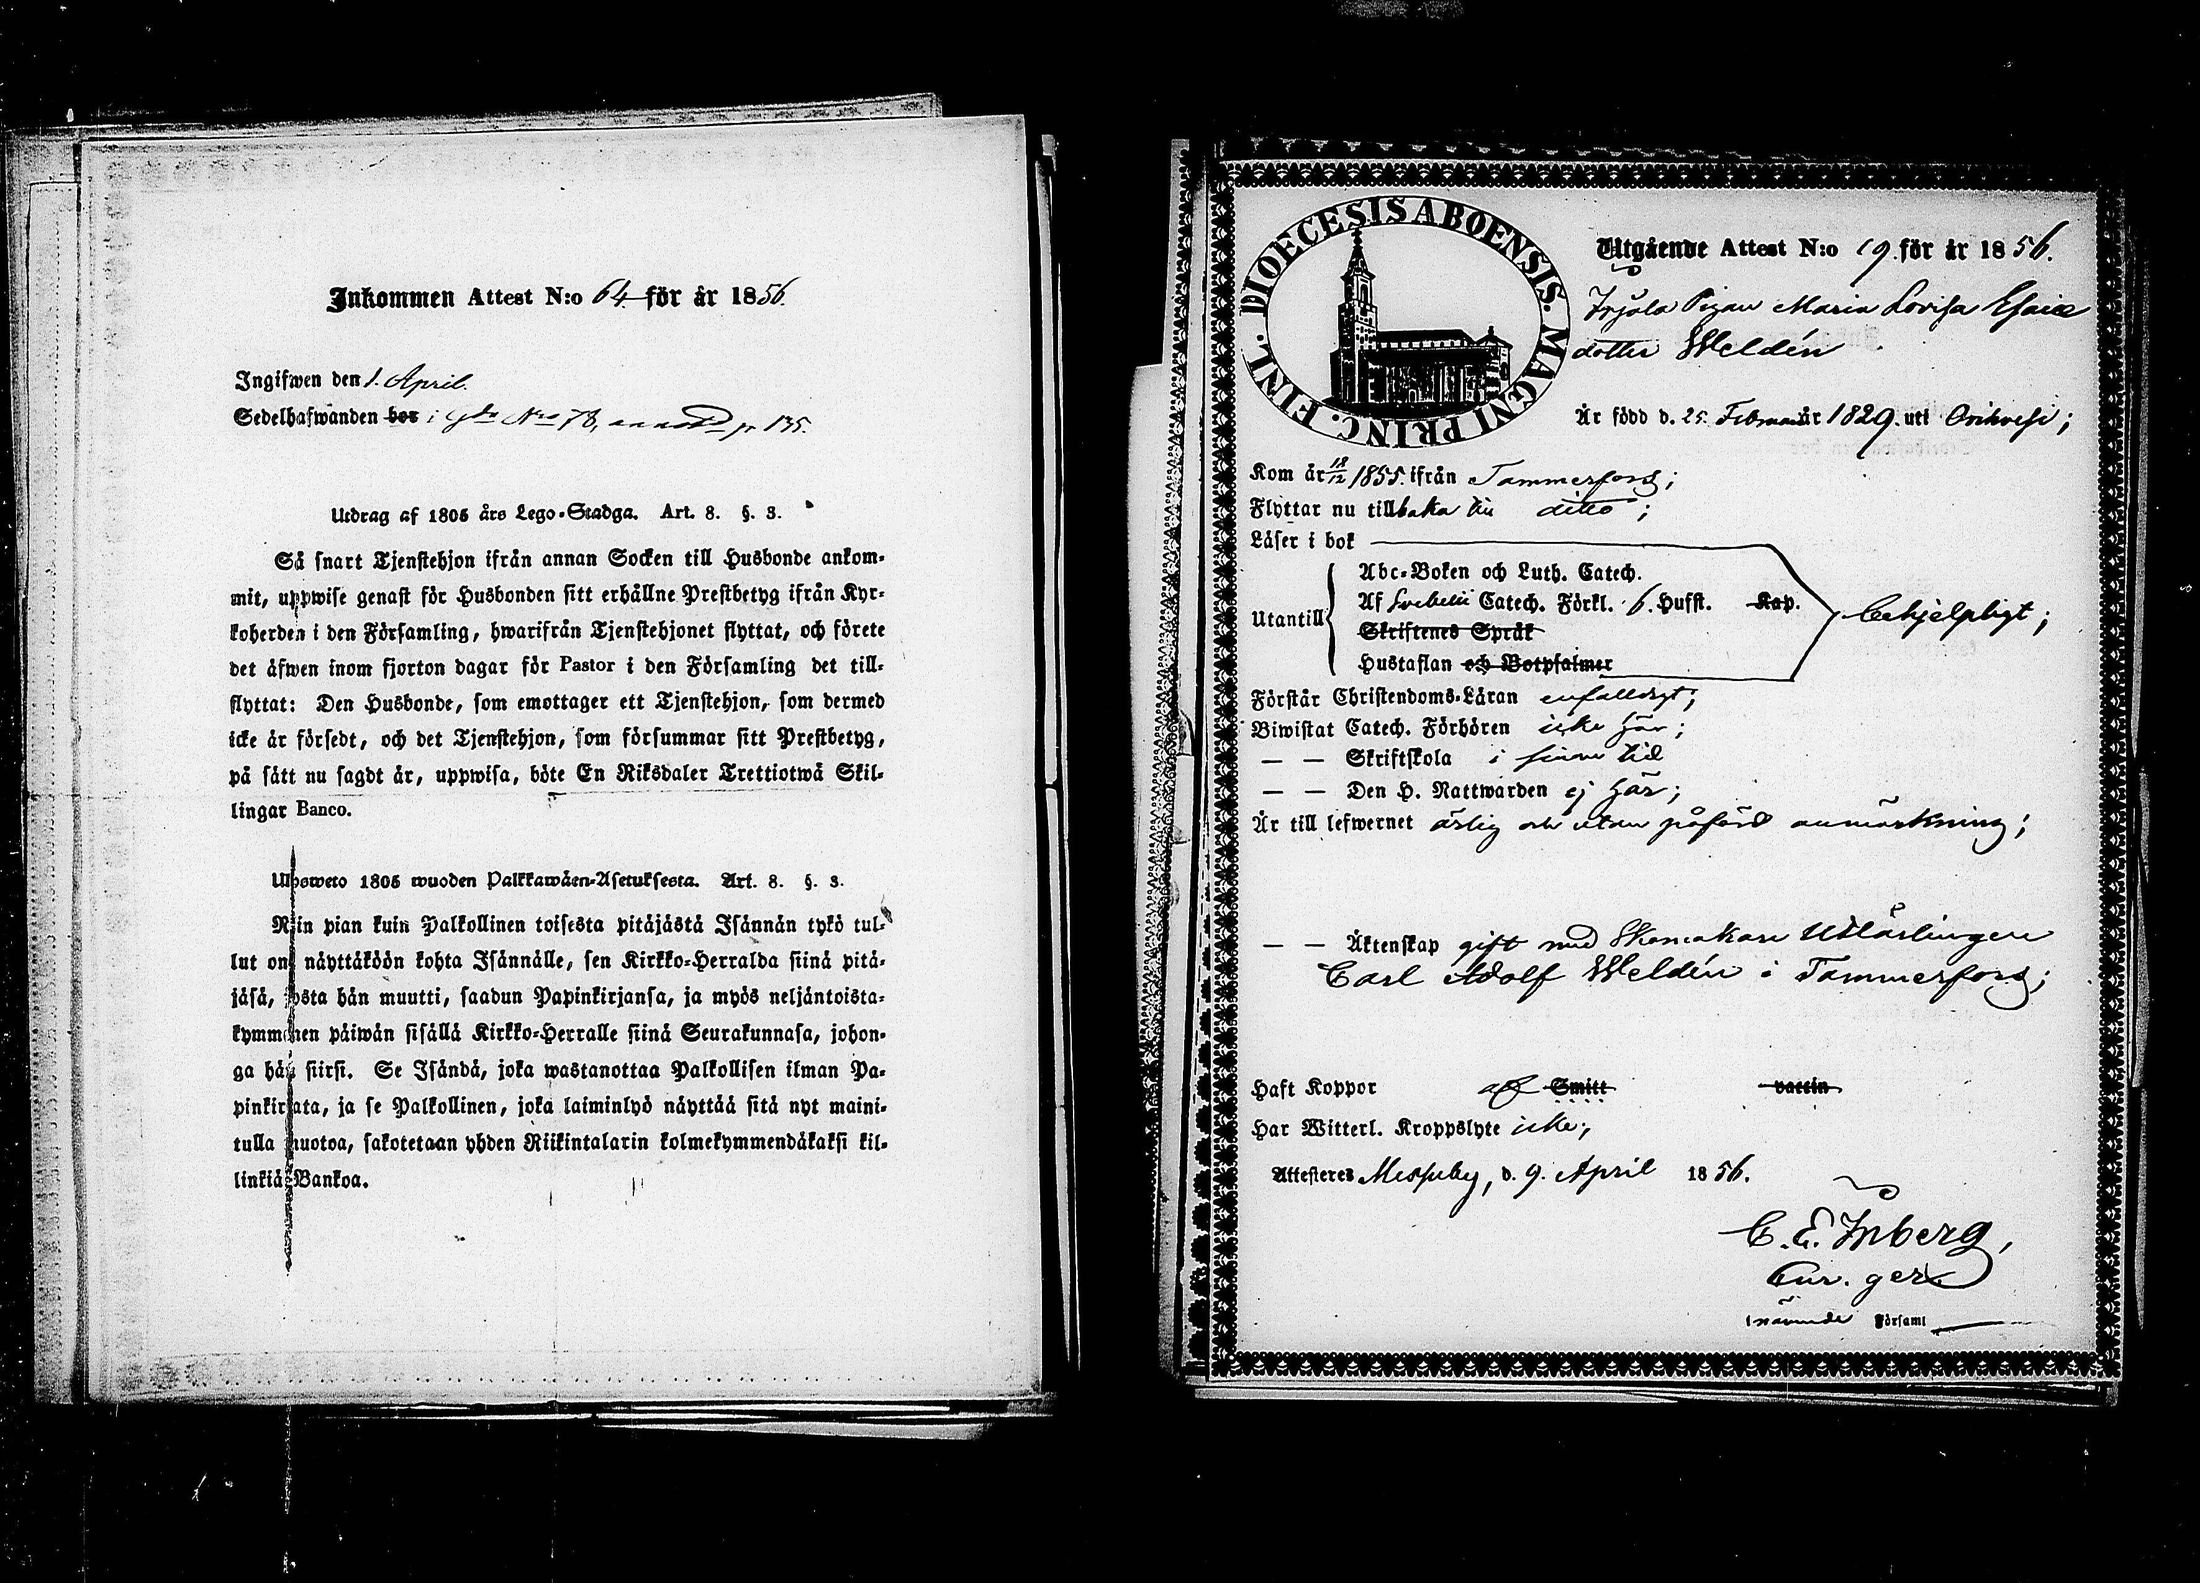 Inkommen Attest N:o 64 för år 1856.
Ingifwen den 1. April.
Sedelhafwanden bor i N:o 78, p 135.
Utdrag af 1805 års Lego-Stadga. Art. 8. §. 3.
Så snart Tjenstehjon ifrån annan Socken till Husbonde ankom-
mit, uppwise genast för Husbonden sitt erhållne Prestbetyg ifrån Kyr-
koherden i den Församling, hwarifrån Tjenstehjonet flyttat, och förete
det äfwen inom fjorton dagar för Pastor i den Församling det till-
flyttat: Den Husbonde, som emottager ett Tjenstehjon, som dermed
icke är försedt, och det Tjenstehjon, som försummar sitt Prestbetyg,
på sätt nu sagdt är, uppwisa, böte En Riksdaler Trettiotwå Skil-
lingar Banco.
Ulosweto 1805 wuoden Palkkawäen-Asetuksesta. Art. 8. §. 3.
Niin pian kuin Palkollinen toisesta pitäjästä Isännän tykö tul-
lut on, näyttäköön kohta Isännälle, sen Kirkko-Herralda siinä pitä-
jäsä, josta hän muutti, saadun Papinkirjansa, ja myös neljäntoista-
kymmenen päiwän sisällä Kirkko-Herralle siinä Seurakunnasa, johon-
ga hän siirsi. Se Isändä, joka wastanottaa Palkollisen ilman Pa-
pinkirjata, ja se Palkollinen, joka laiminlyö näyttää sitä nyt maini-
tulla muotoa, sakotetaan yhden Riikintalarin kolmekymmendäkaksi kil-
linkiä Bankoa.
DIOECESIS ABOENSIS. MAGNI PRINC. FINL.
Utgående Attest N:o 19 för år 1856.
Irjala Pigan Maria Lovisa Esaiæ
dotter Weldén
Är född d. 25. Februari år 1829. uti Orihvesi;
Kom år 18/12 1855. ifrån Tammerfors;
Flyttar nu tillbaka till ditto;
Läser i bok
Utantill
Abc-Boken och Luth. Catech.
Af Svebelii Catech. Förkl. 6. Hufst. Kap.
Skriftenes Språk
Hustaflan och Botpsalmer
behjelpligt;
Förstår Christendoms-Läran enfalldigt;
Biwistat Catech. Förhören icke här;
— — Skriftskola i sinom tid
— — Den H. Nattwarden ej här;
Är till lefwernet ärlig och utan påförd anmärkning;
— — Äktenskap gift med Skomakare Utlärlingen
Carl Adolf Weldén i Tammerfors;
Haft Koppor af Smitt vaccin
Har Witterl. Kroppslyte icke;
Attesteras Messuby, d. 9. April 1856.
C. E. Inberg,
Cur. ger.
i nämnde Församl